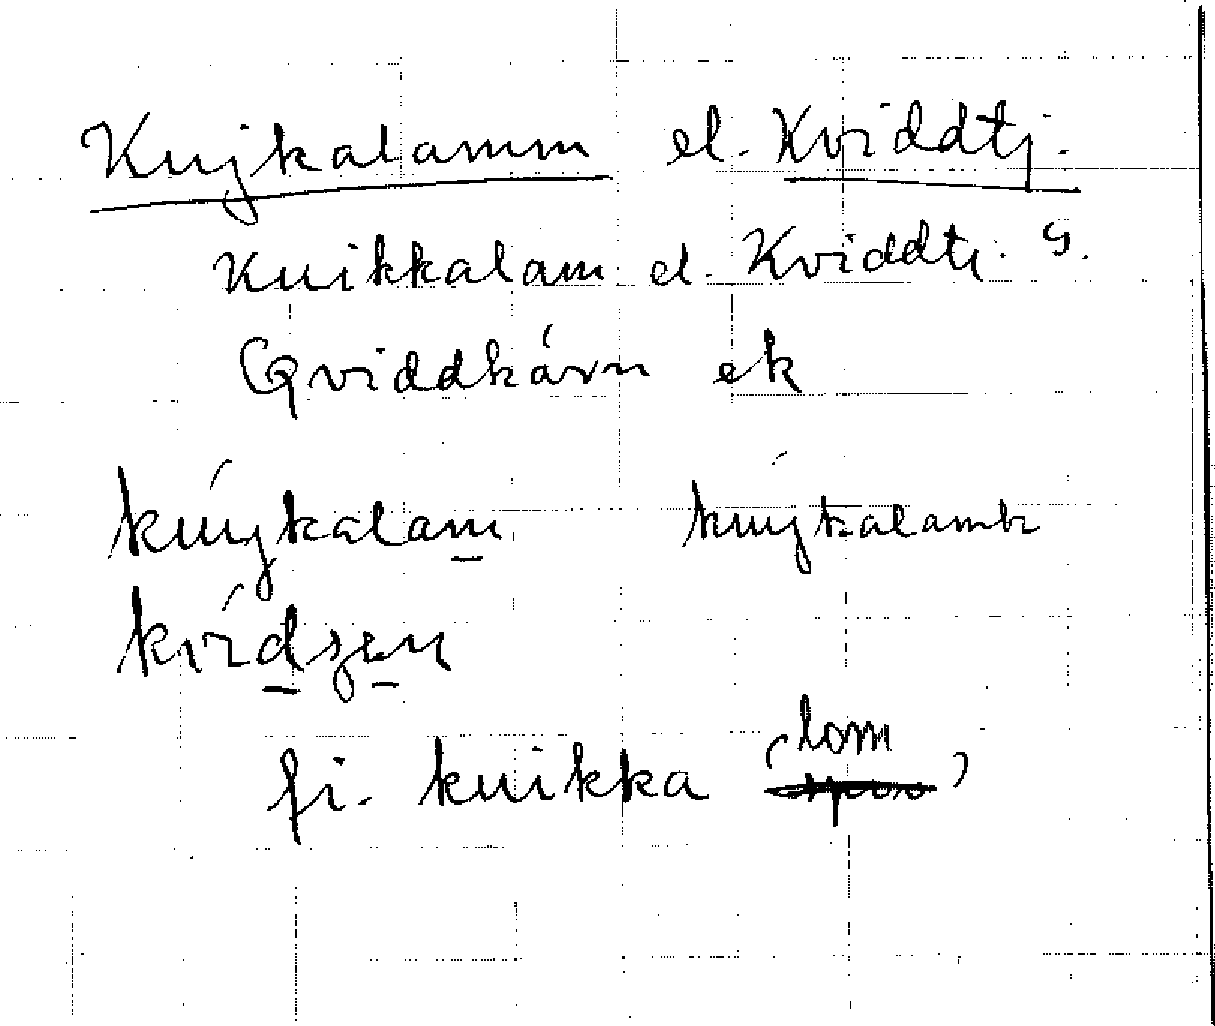 Kujkalamm el. Kviddtj.
Kuikkalam el. Kviddtj. G.
Qviddkárn ek
kújkalam kújkalamk
kvídzen
fi. kuikka 'lom'